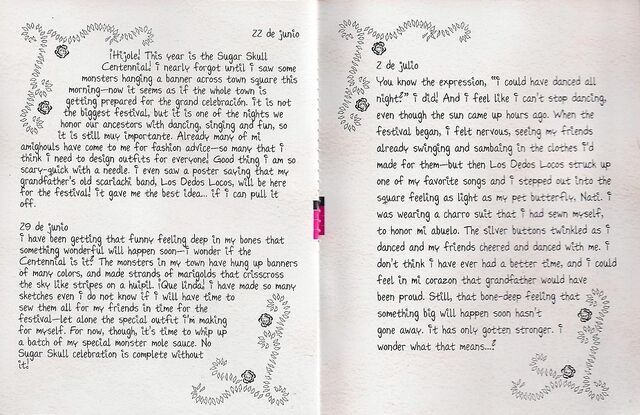 22 de junio
¡Híjole! This year is the Sugar Skull
Centennial! i nearly forgot until i saw some
monsters hanging a banner across town square this
morning—now it seems as if the whole town is
getting prepared for the grand celebración. it is not
the biggest festival, but it is one of the nights we
honor our ancestors with dancing, singing and fun, so
it is still muy importante. Already many of mi
amighouls have come to me for fashion advice—so many that i
think i need to design outfits for everyone! Good thing i am so
scary-quick with a needle. i even saw a poster saying that my
grandfather's old scariachi band, Los Dedos Locos, will be here
for the festival! it gave me the best idea... if i can pull it
off.
29 de junio
i have been getting that funny feeling deep in my bones that
something wonderful will happen soon—i wonder if the
Centennial is it? The monsters in my town have hung up banners
of many colors, and made strands of marigolds that crisscross
the sky like stripes on a huipil. ¡Que linda! i have made so many
sketches even i do not know if i will have time to
sew them all for my friends in time for the
festival—let alone the special outfit i'm making
for myself. For now, though, it's time to whip up
a batch of my special monster mole sauce. No
Sugar Skull celebration is complete without
it!
2 de julio
You know the expression, "i could have danced all
night?" i did! And i feel like i can't stop dancing,
even though the sun came up hours ago. When the
festival began, i felt nervous, seeing my friends
already swinging and sambaing in the clothes i'd
made for them—but then Los Dedos Locos struck up
one of my favorite songs and i stepped out into the
square feeling as light as my pet butterfly, Nati. i
was wearing a charro suit that i had sewn myself,
to honor mi abuelo. The silver buttons twinkled as i
danced and my friends cheered and danced with me. i
don't think i have ever had a better time, and i could
feel in mi corazon that grandfather would have
been proud. Still, that bone-deep feeling that
something big will happen soon hasn't
gone away. it has only gotten stronger. i
wonder what that means...?